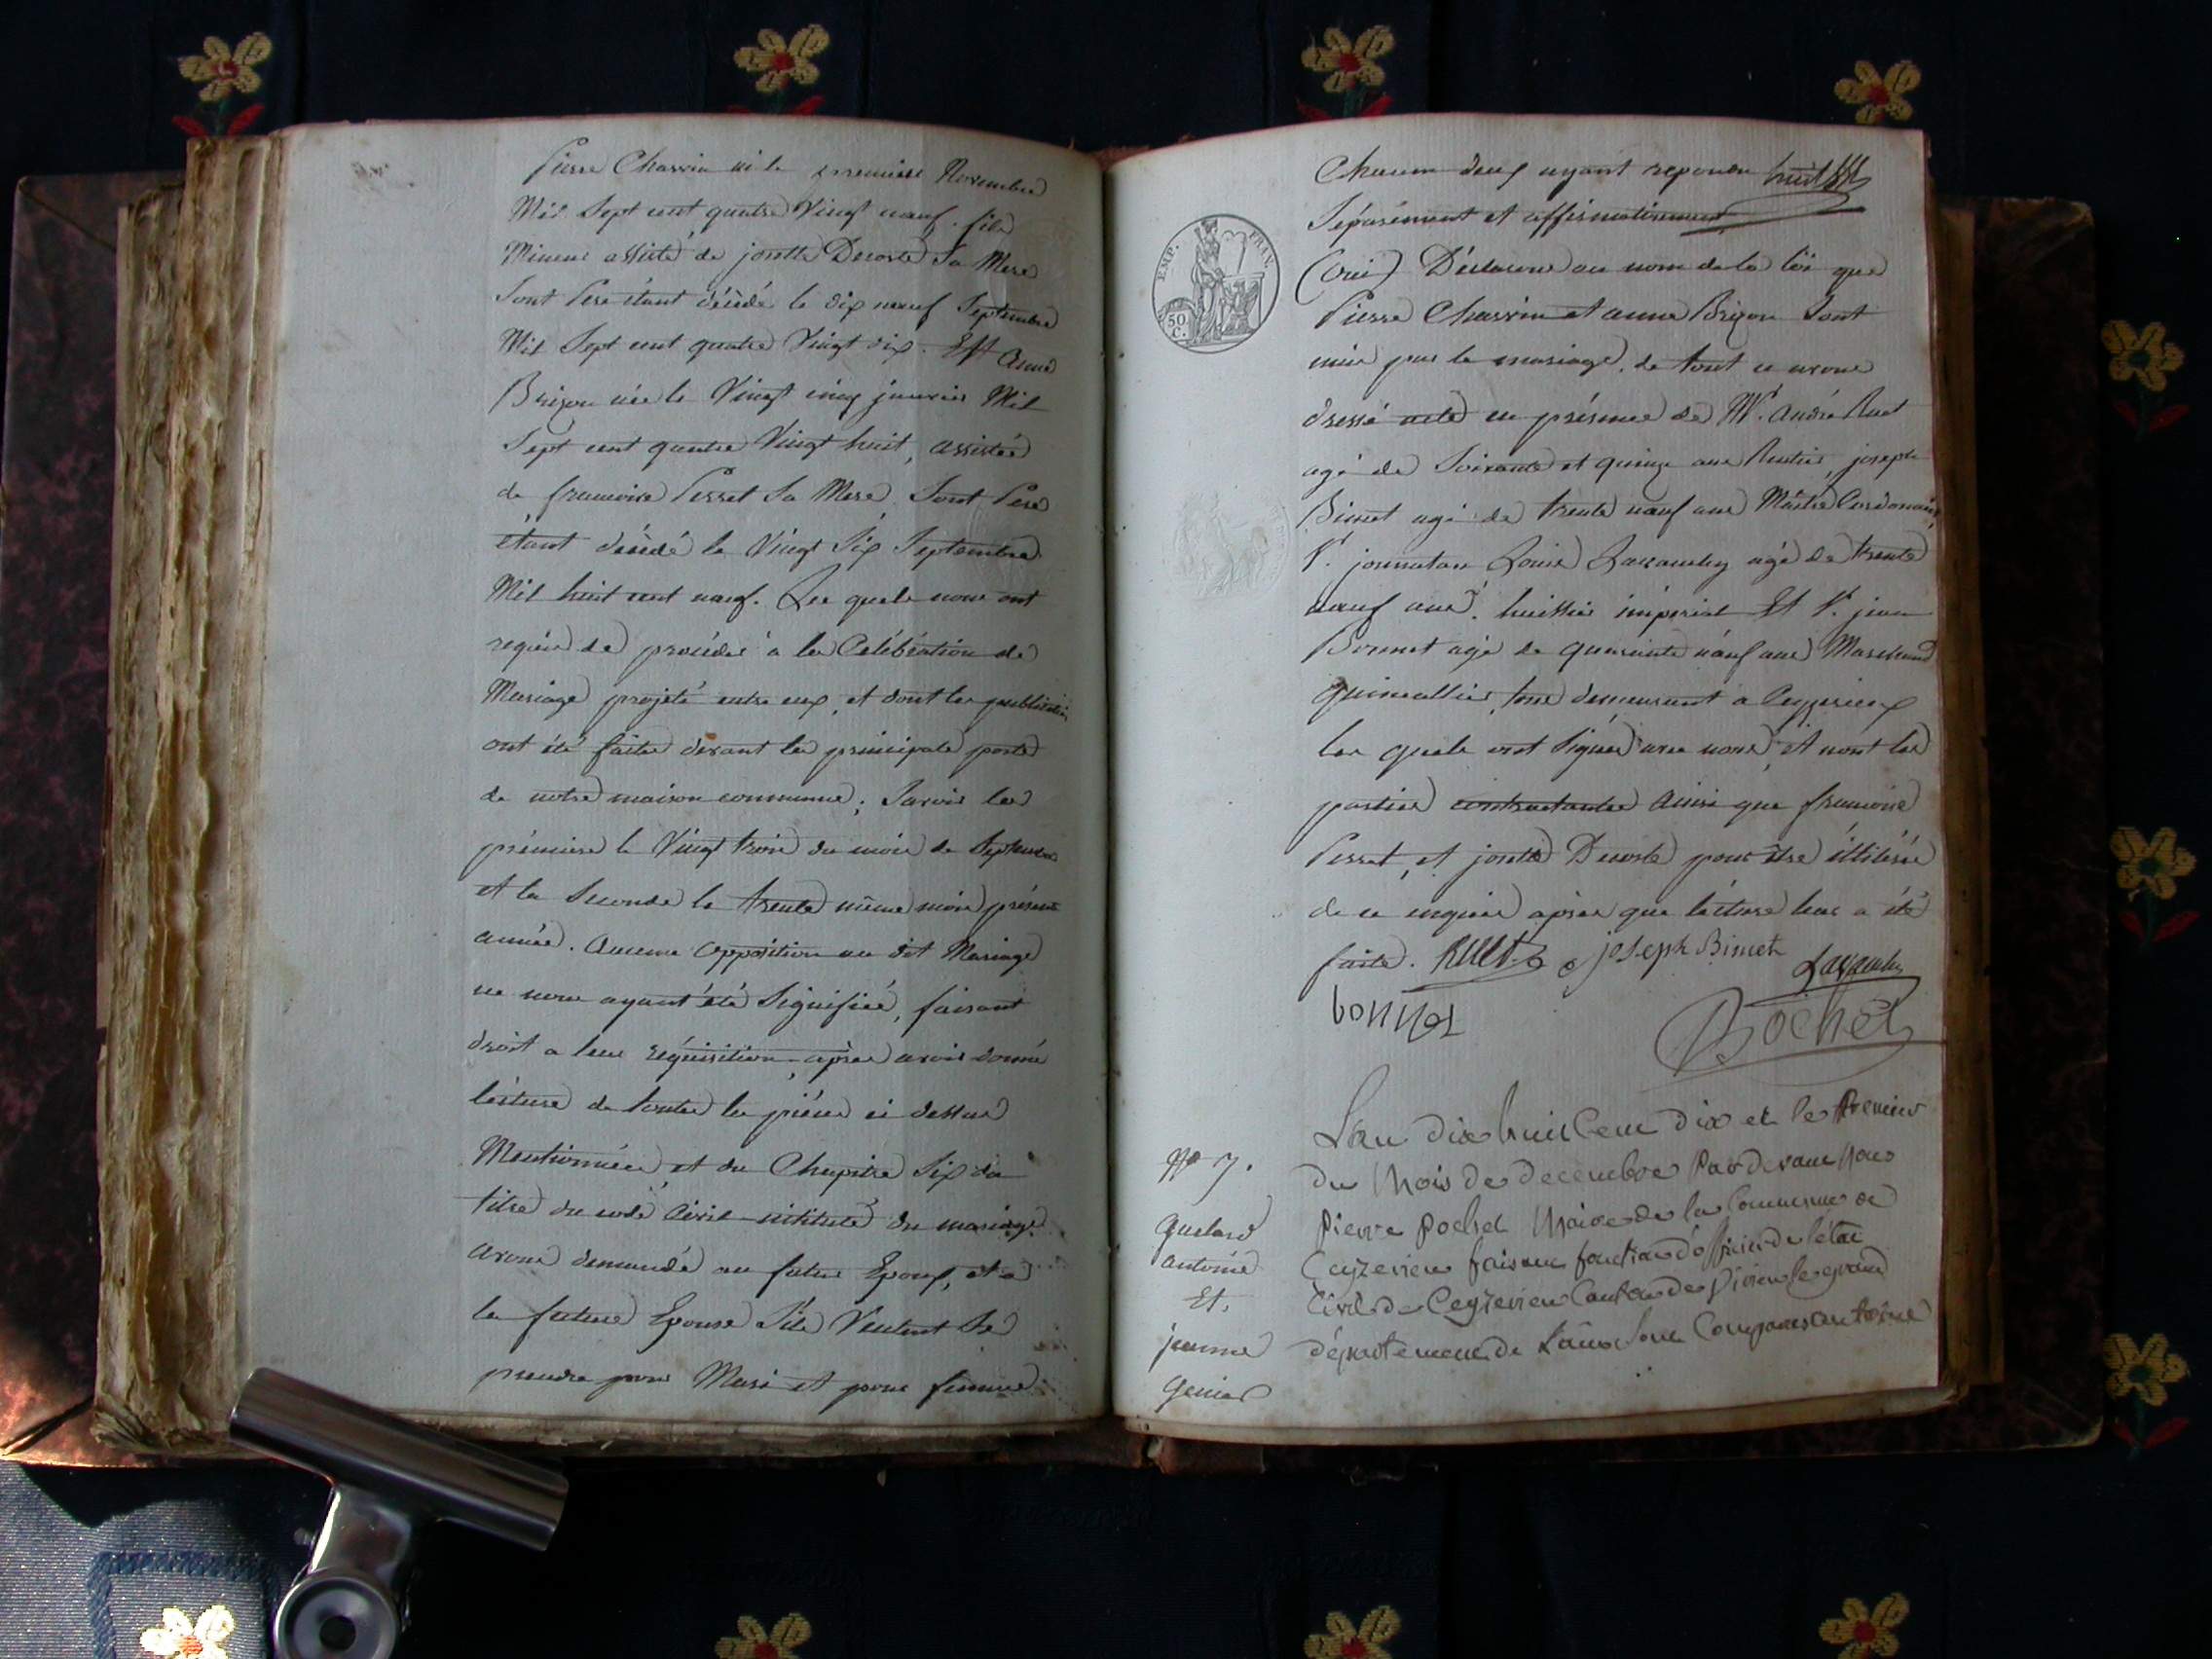 Pierre Charvin né le premiere Novembre
Mil Sept cent quatre Vingt neuf. fils
Mineur assisté de josette Decoste Sa Mere
Sont Pere étant décédé le dix neuf Septembre
Mil Sept cent quatre Vingt dix. Et Anne
Brizon née le Vingt cinq janvier Mil
Sept cent quatre Vingt huit, assistée
de francoise Perret Sa Mere, Sont Pere
étant décédé le Vingt Six Septembre
Mil huit cent neuf. Les quels nous ont
requis de procéder à la Célébration de
Mariage projeté entre eux, et dont les publication
ont été faites devant la principale porte
de notre maison commune; Savoir la
première le Vingt trois du mois de Septembre
et la Seconde le trente même mois présente
année. Aucune opposition au dit Mariage
ne nous ayant été Signifiée, faisant
droit a leur réquisition, après avoir donné
lecture de toutes les pièces ci dessus
Mentionnées, et du Chapitre Six du
titre du code Civil intitulé du mariage
avons demandé au futur Epoux, et a
la future Epouse S'ils Veulent Se
prendre pour Mari et pour femme
Chacun deux ayant repondu
Séparément et affirmativement
(oui) Déclarons au nom de la loi que
Pierre Charvin et anne Brizon Sont
unis par le mariage. de tout ce avons
dressé acte en présence de Mr. André Ruet
agé de Soixante et quinze ans Rentier, joseph
Bimet agé de trente neuf ans Maitre Cordonnier,
Sr. jonnatan Louis Lavauchy agé de trente
neuf ans, huissier impérial Et Sr. jean
Bonnet agé de quarante neuf ans Marchand
quincallier, tous demeurant a Ceyzerieux
les quels ont Signés avec nous, et nont les
parties contractantes Ainsi que francoise
Perret, et josette Decoste pour être illiterée
de ce enquis après que lecture leur a été
faite. Ruet joseph Bimet
bonnet
Bochet
Lan dix huit Cent dix et le Premier
du Mois de decembre Par devant Nous
Pierre Pochet Maire de la Commune de
Ceyzerieu faisant fonction d'officier de l'état
Civil de Ceyzerieu Canton de Virieu le grand
département de Lain Sont Comparus antoine
No 7.
antoine
Et,
jeanne